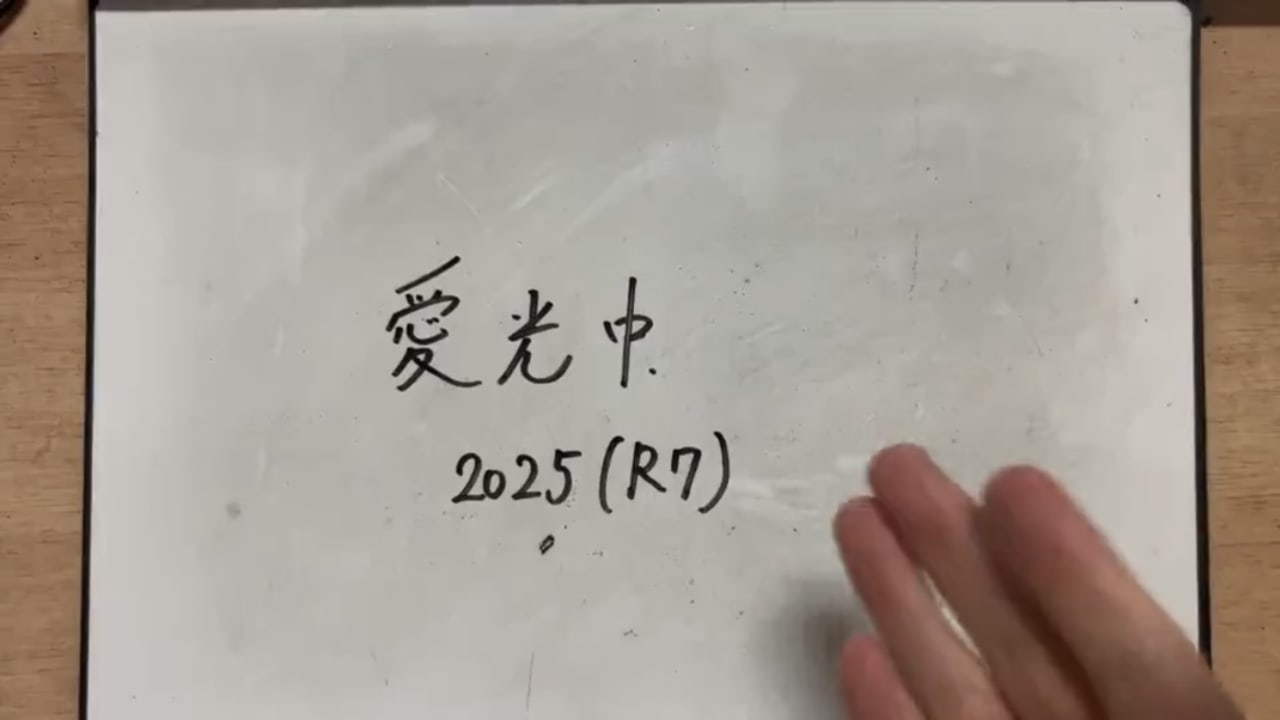 愛光中.
2025(R7)